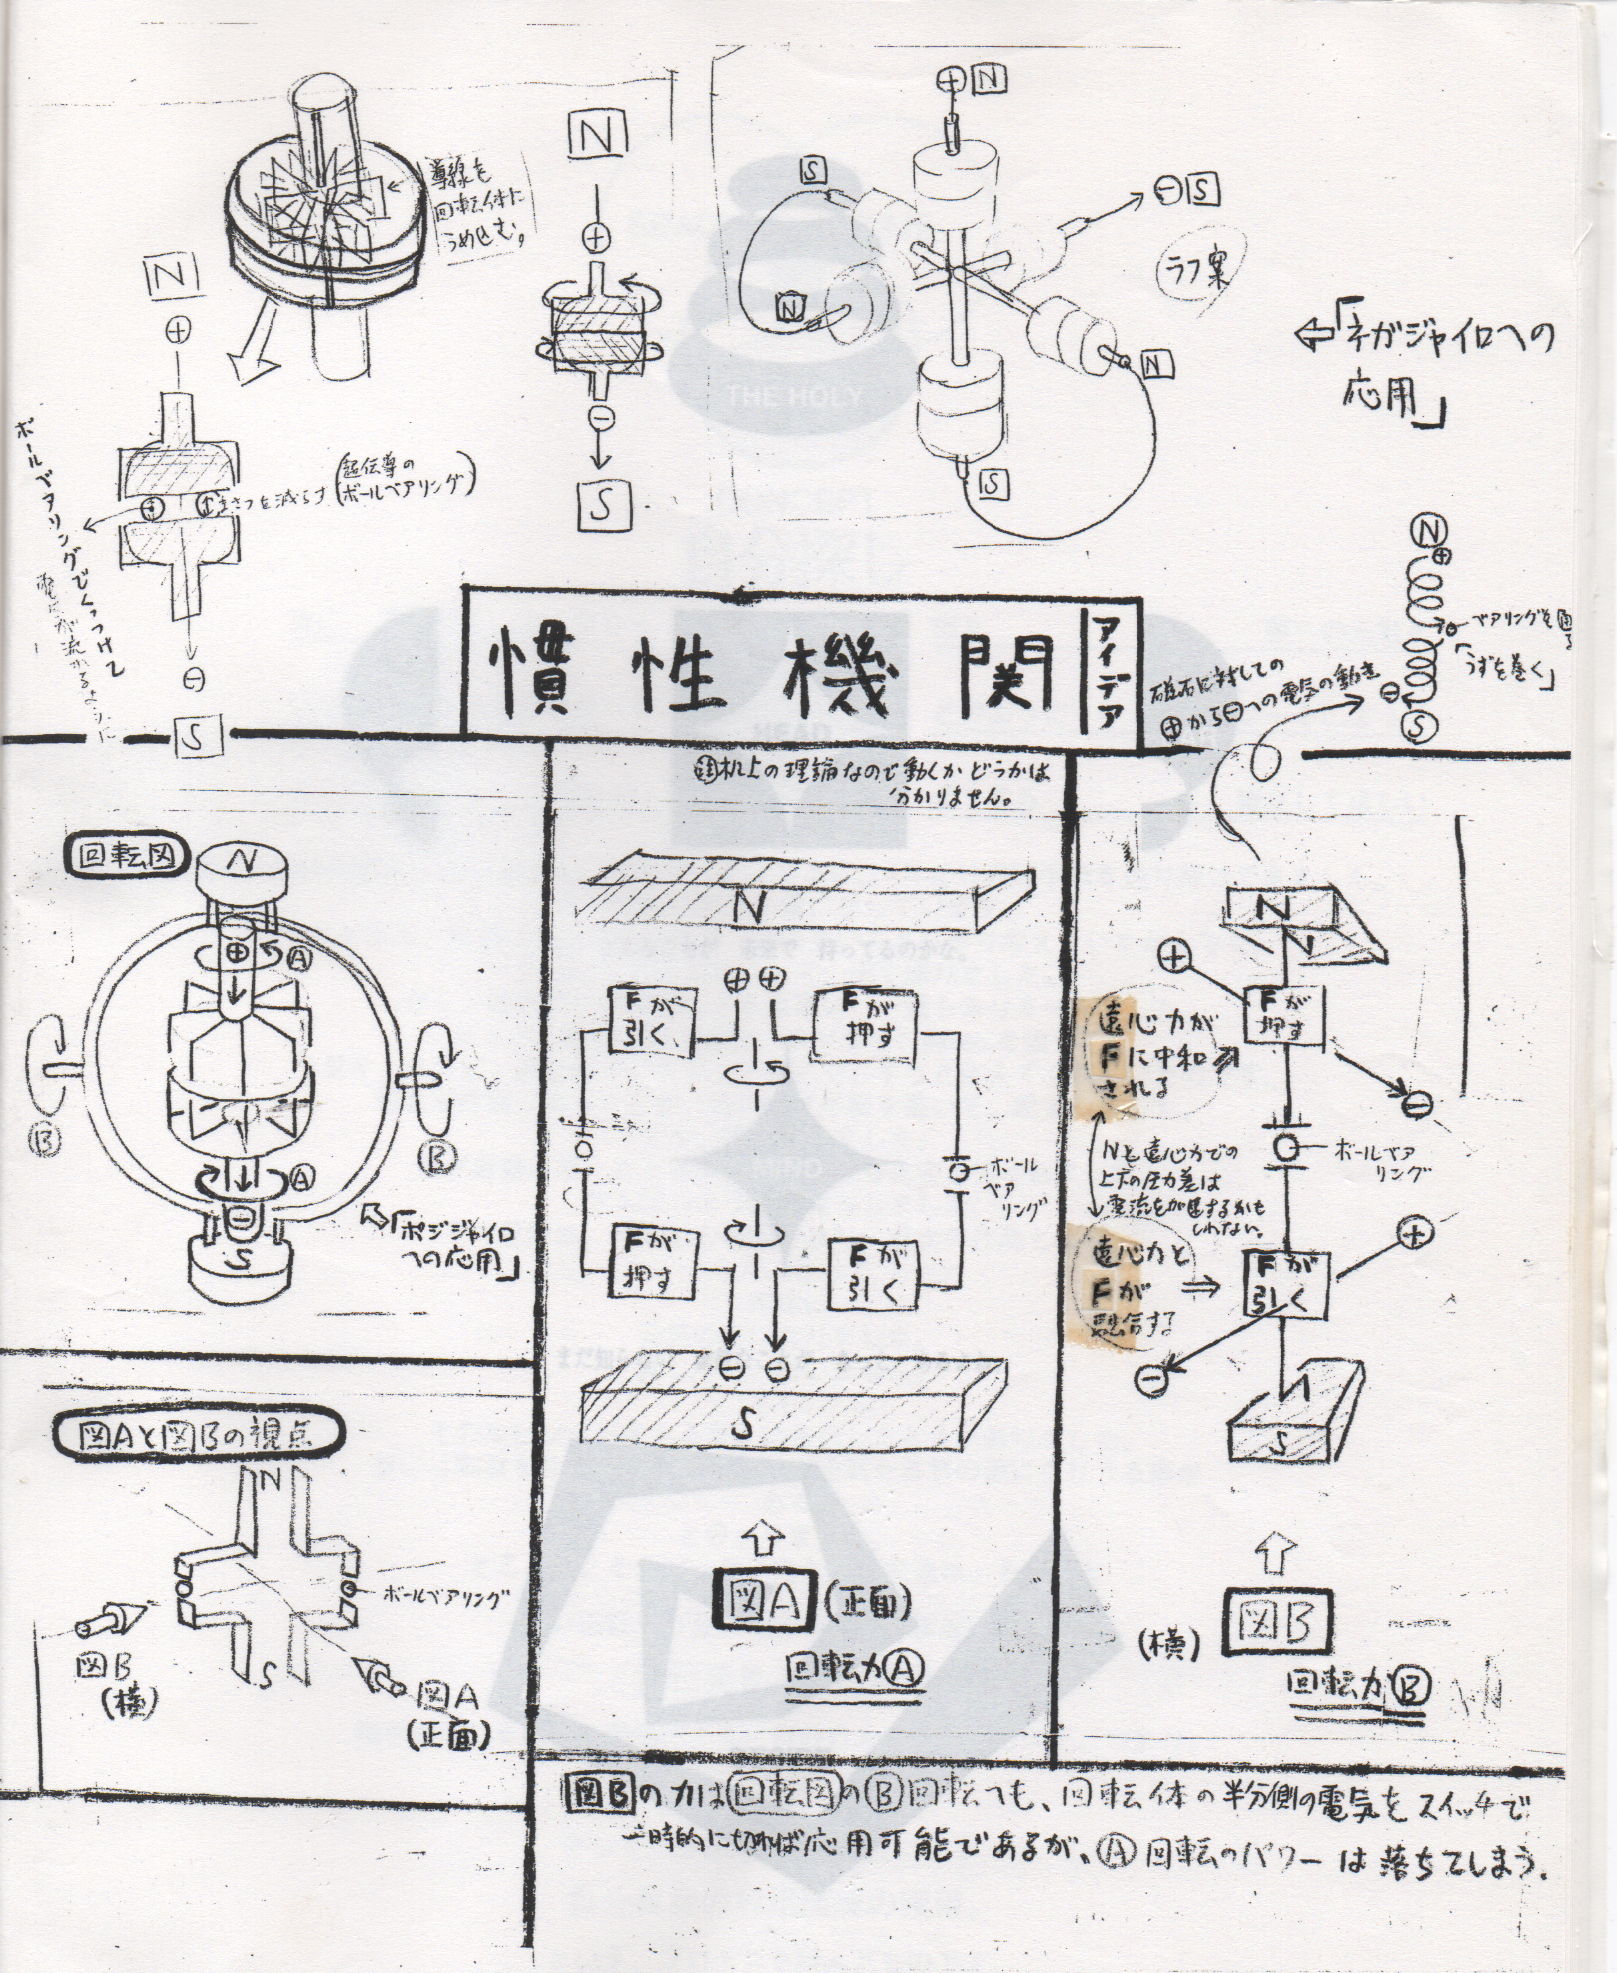 導線を
回転体に
うめ込む。
N
⊕
まさつを減らす
(超伝導の
ボールベアリング)
ボールベアリングでくっつけて
電気が流れるように
⊖
S
N
⊕
⊖
S
⊕N
S
⊖S
N
N
S
ラフ案
⇦「ネガジャイロへの
応用」
慣性機関
アイデア
N
⊕
⊖
S
ベアリングを回る
「うずを巻く」
磁石に対しての
⊕から⊖への電気の動き
注 机上の理論なので動くかどうかは
分かりません。
回転図
N
⊕
Ⓐ
Ⓑ
Ⓑ
Ⓐ
⊖
S
「ポジジャイロ
への応用」
図Aと図Bの視点
N
ボールベアリング
S
図B
(横)
図A
(正面)
N
⊕⊕
Fが
引く
Fが
押す
ボール
ベア
リング
Fが
押す
Fが
引く
⊖⊖
S
図A (正面)
回転力Ⓐ
N
N
⊕
Fが
押す
⊖
遠心力が
Fに中和
される
ボールベア
リング
Nと遠心力での
上下の圧力差は
電流を加速するかも
しれない。
⊕
遠心力と
Fが
融合する
Fが
引く
⊖
S
図B
(横)
回転力Ⓑ
図Bの力は回転図のⒷ回転へも、回転体の半分側の電気をスイッチで
一時的に切れば応用可能であるが、Ⓐ回転のパワーは落ちてしまう。
THE HOLY